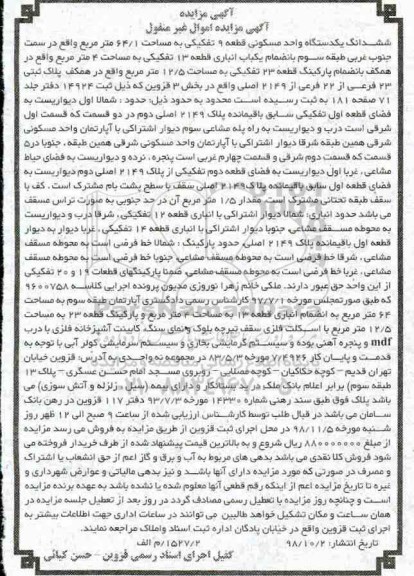 آگهی مزایده
آگهی مزایده اموال غیر منقول
ششدانگ یکدستگاه واحد مسکونی قطعه ۹ تفکیکی به مساحت ۶۴/۱ متر مربع واقع در سمت
جنوب غربی طبقه سوم بانضمام یکباب انباری قطعه ۱۳ تفکیکی به مساحت ۴ متر مربع واقع در
همکف بانضمام پارکینگ قطعه ۲۳ تفکیکی به مساحت ۱۲/۵ متر مربع واقع در همکف پلاک ثبتی
۲۳ فرعی از ۲۲ فرعی از ۲۱۴۹ اصلی واقع در بخش ۳ قزوین که ذیل ثبت ۱۴۹۲۴ دفتر جلد
۷۱ صفحه ۱۸۱ به ثبت رسیده است محدود به حدود ذیل: حدود: شمالا اول دیواریست به
فضای قطعه اول تفکیکی سابق باقیمانده پلاک ۲۱۴۹ اصلی دوم در دو قسمت که قسمت اول
شرقی است درب و دیواریست به راه پله مشاعی سوم دیوار اشتراکی با آپارتمان واحد مسکونی
شرقی همین طبقه شرقا دیوار اشتراکی با آپارتمان واحد مسکونی شرقی همین طبقه، جنوبا در۵
قسمت که قسمت دوم شرقی و قسمت چهارم غربی است پنجره، نرده و دیواریست به فضای حیاط
مشاعی، غربا اول دیواریست به فضای قطعه دوم تفکیکی از پلاک ۲۱۴۹ اصلی دوم دیواریست به
فضای قطعه اول سابق باقیمانده پلاک ۲۱۴۹ اصلی سقف با سطح پشت بام مشترک است. کف با
سقف طبقه تحتانی مشترک است مقدار ۱/۵ متر مربع آن در حد جنوبی به صورت تراس مسقف
می باشد حدود انباری: شمالا دیوار اشتراکی با انباری قطعه ۱۲ تفکیکی، شرقا درب و دیواریست
به محوطه مسقف مشاعی، جنوبا دیوار اشتراکی با انباری قطعه ۱۴ تفکیکی، غربا دیوار به دیوار
قطعه اول باقیمانده پلاک ۲۱۴۹ اصلی. حدود پارکینگ: شمالا خط فرضی است به محوطه مسقف
مشاعی، شرقا خط فرضی است به محوطه مسقف مشاعی جنوبا خط فرضی است به محوطه مسقف
مشاعی، غربا خط فرضی است به محوطه مسقف مشاعی، ضمنا پارکینگهای قطعات ۱۹ و ۲۰ تفکیکی
از این واحد حق عبور دارند. ملکی خانم زهرا نوروزی مدیون پرونده اجرایی کلاسه ۹۶۰۰۷۵۸
که طبق صورتمجلس مورخه ۹۷/۷/۱ کارشناس رسمی دادگستری آپارتمان طبقه سوم به مساحت
۶۴ متر مربع به انضمام انباری قطعه ۱۳ به مساحت ۴ متر مربع و پارکینگ قطعه ۲۳ به مساحت
۱۲/۵ متر مربع با اسکلت فلزی سقف تیرچه بلوک و نمای سنگ، کابینت آشپزخانه فلزی با درب
mdf و پنجره آهنی بوده و سیستم گرمایشی بخاری و سیستم سرمایشی کولر آبی با توجه به
قدمت و پایان کار ۷/۴۹۲۶ مورخ ۸۳/۵/۳ در مجموعه نه واحدی به آدرس: قزوین خیابان
تهران قدیم - کوچه حکاکیان - کوچه مصلایی - روبروی مسجد امام حسن عسگری - پلاک ۱۳
طبقه سوم) برابر اعلام بانک ملک در ید بستانکار و دارای بیمه (سیل، زلزله و آتش سوزی) می
باشد پلاک فوق طبق سند رهنی شماره ۱۴۳۳۰ مورخ ۹۳/۷/۳ دفتر ۱۱۷ قزوین در رهن بانک
سامان می باشد در قبال طلب توسط کارشناس ارزیابی شده از ساعت ۹ صبح الی ۱۲ ظهر روز
شنبه مورخه ۹۸/۱۱/۵ در محل اجرای ثبت قزوین از طریق مزایده به فروش می رسد مزایده
از مبلغ ۸۸۰۰۰۰۰۰۰ ریال شروع و به بالاترین قیمت پیشنهاد شده از طرف خریدار فروخته می
شود فروش کلا نقدی می باشد بدهی های مربوط به آب و برق و گاز اعم از حق انشعاب یا اشتراک
و مصرف در صورتی که مورد مزایده دارای آنها باشد و نیز بدهی مالیاتی و عوارض شهرداری و
غیره تا تاریخ مزایده اعم از اینکه رقم قطعی آنها معلوم شده یا نشده باشد به عهده برنده مزایده
است و چنانچه روز مزایده با تعطیل رسمی مصادف گردد در روز بعد از تعطیل جلسه مزایده در
همان ساعت و مکان تشکیل خواهد طالبین می توانند در ساعات اداری جهت اطلاعات بیشتر به
اجرای ثبت قزوین واقع در خیابان پادگان اداره ثبت اسناد واملاک مراجعه نمایند.
تاریخ انتشار: ۹۸/۱۰/۲ ۱۵۲۷/۲/م الف
کفیل اجرای اسناد رسمی قزوین - حسن کیانی